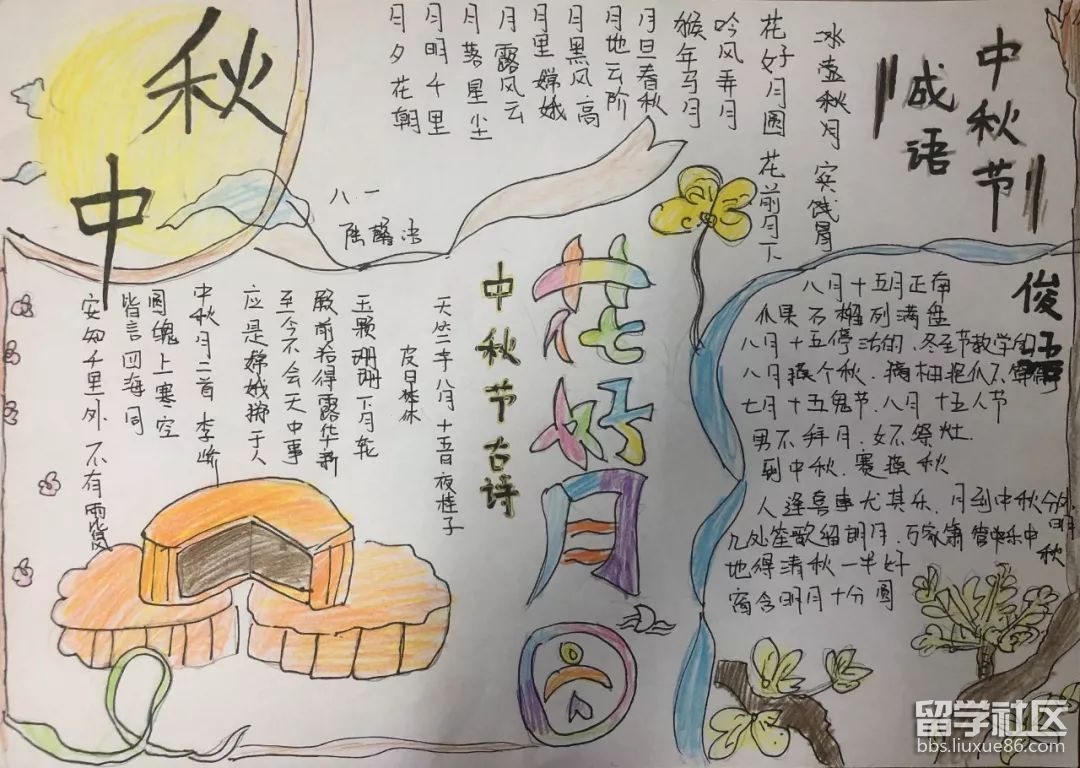 中秋
八一
中秋节
成语
冰壶秋月
花好月圆 花前月下
吟风弄月
猴年马月
月旦春秋
月地云阶
月黑风高
月里嫦娥
月露风云
月落星尘
月明千里
月夕花朝
花好月圆
中秋节古诗
天竺寺八月十五日夜桂子
皮日休
玉颗珊珊下月轮
殿前拾得露华新
至今不会天中事
应是嫦娥掷于人
中秋月二首 李峤
圆魄上寒空
皆言四海同
安知千里外 不有雨
俊语
八月十五月正
果石榴列满盘
七月十五鬼节.八月十五人节
男不拜月.女不祭灶.
到中秋.赛换秋
人逢喜事尤其乐.月到中秋分外明
几处笙歌留朗月.万家箫管乐中秋
地得清秋一半好
窗含明月十分圆
留学社区
bbs.liuxue86.com